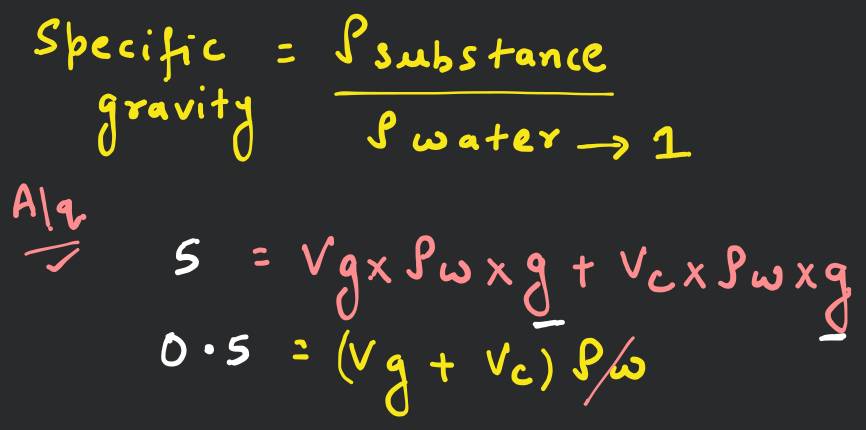 Specific gravity = ρ substance / ρ water → 1
A/q
5 = Vg x ρw x g + Vc x ρw x g
0.5 = (Vg + Vc) ρw